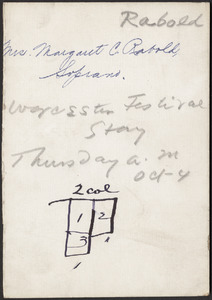 Rabold
Mrs. Margaret C. Rabold,
Soprano.
Worcester Festival
Story
Thursday a.m
Oct-4
2 col
1 2
3